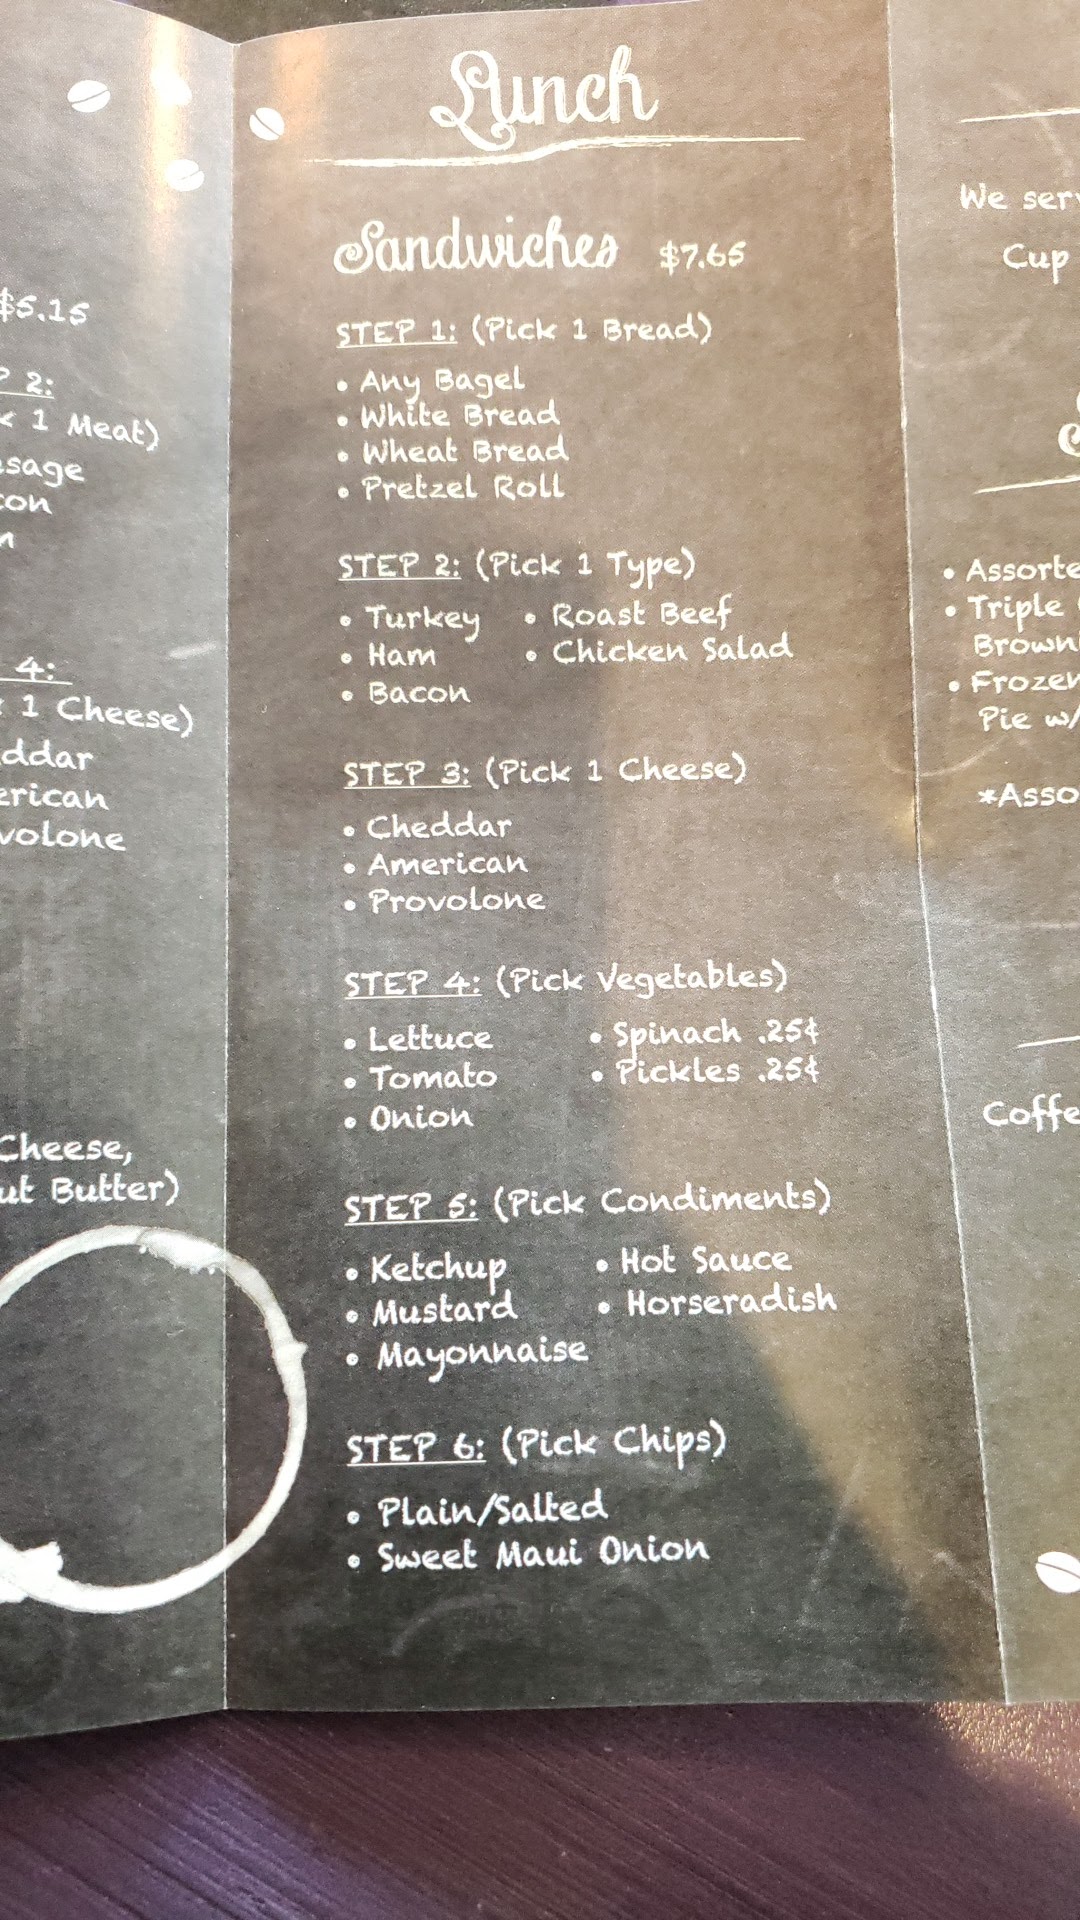 $5.15
2:
1 Meat)
Cheese)
4:
1 Cheese)
Cheese,
Butter)
Lunch
Sandwiches $7.65
STEP 1: (Pick 1 Bread)
• Any Bagel
• White Bread
• Wheat Bread
• Pretzel Roll
STEP 2: (Pick 1 Type)
• Turkey • Roast Beef
• Ham • Chicken Salad
• Bacon
STEP 3: (Pick 1 Cheese)
• Cheddar
• American
• Provolone
STEP 4: (Pick Vegetables)
• Lettuce • Spinach .25¢
• Tomato • Pickles .25¢
• Onion
STEP 5: (Pick Condiments)
• Ketchup • Hot Sauce
• Mustard • Horseradish
• Mayonnaise
STEP 6: (Pick Chips)
• Plain/Salted
• Sweet Maui Onion
We
Cup
• Triple
Pie w/